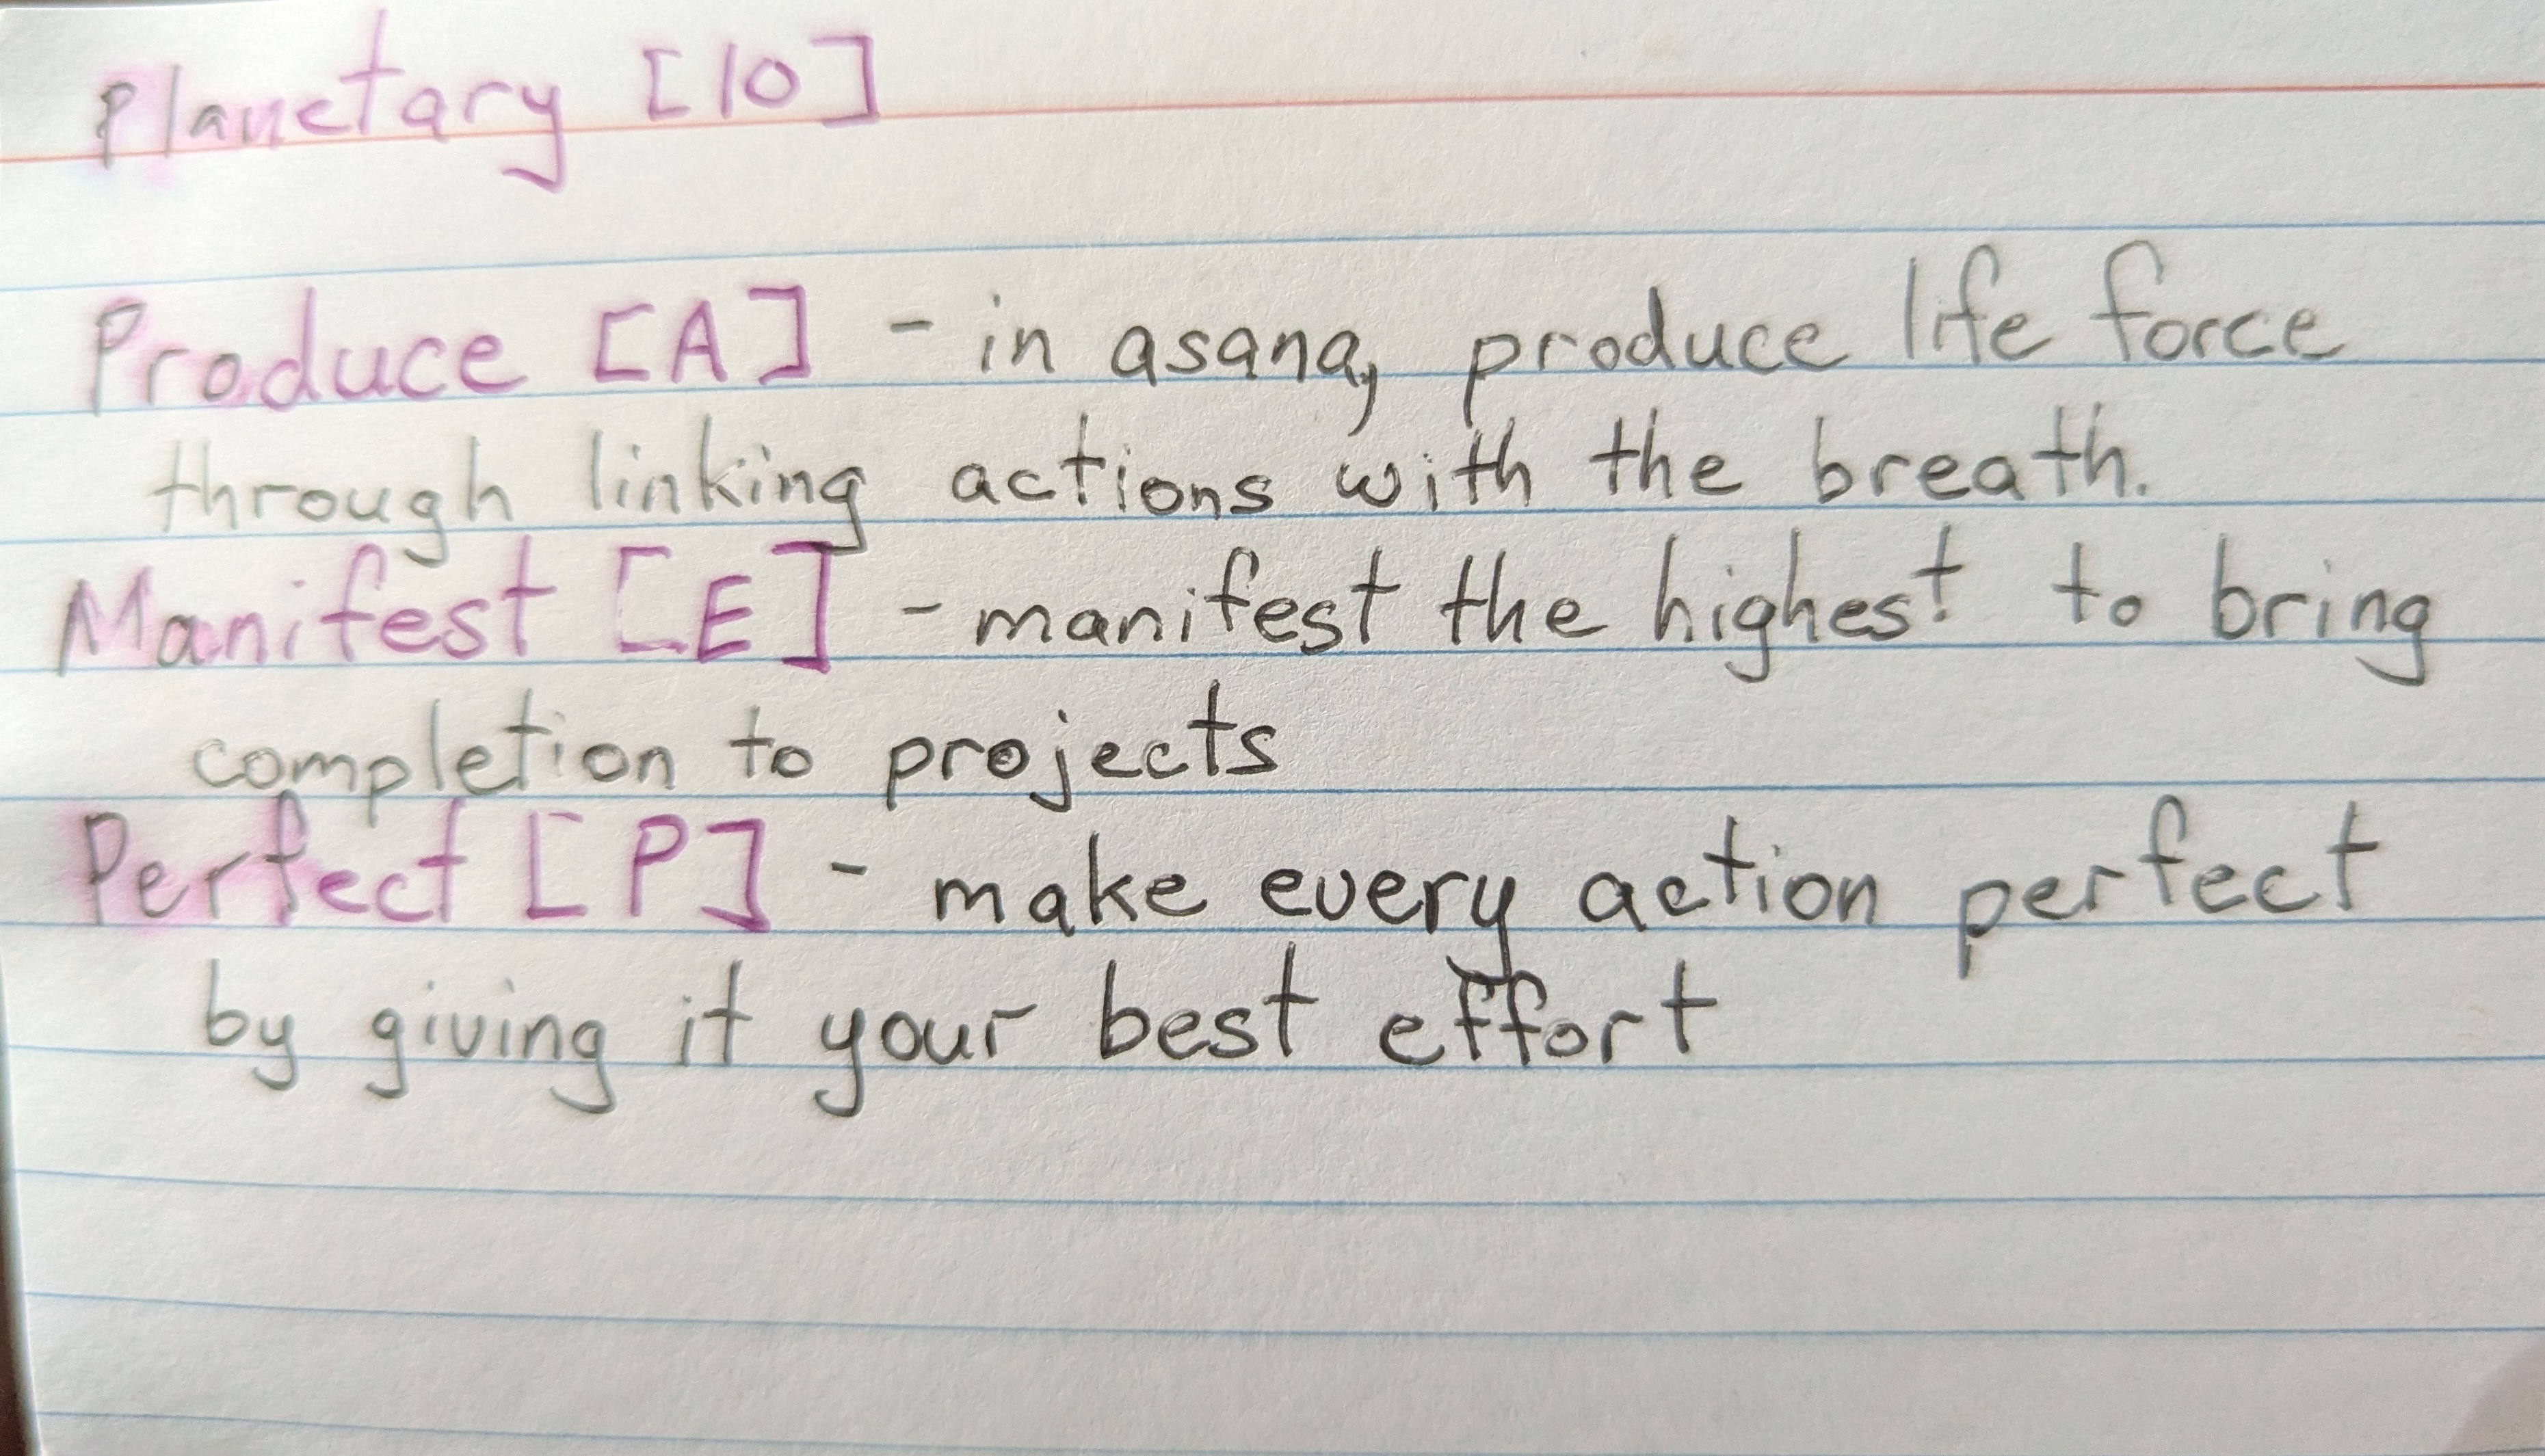 Planetary [10]
Produce [A] - in asana, produce life force
through linking actions with the breath.
Manifest [E] - manifest the highest to bring
completion to projects
Perfect [P] - make every action perfect
by giving it your best effort